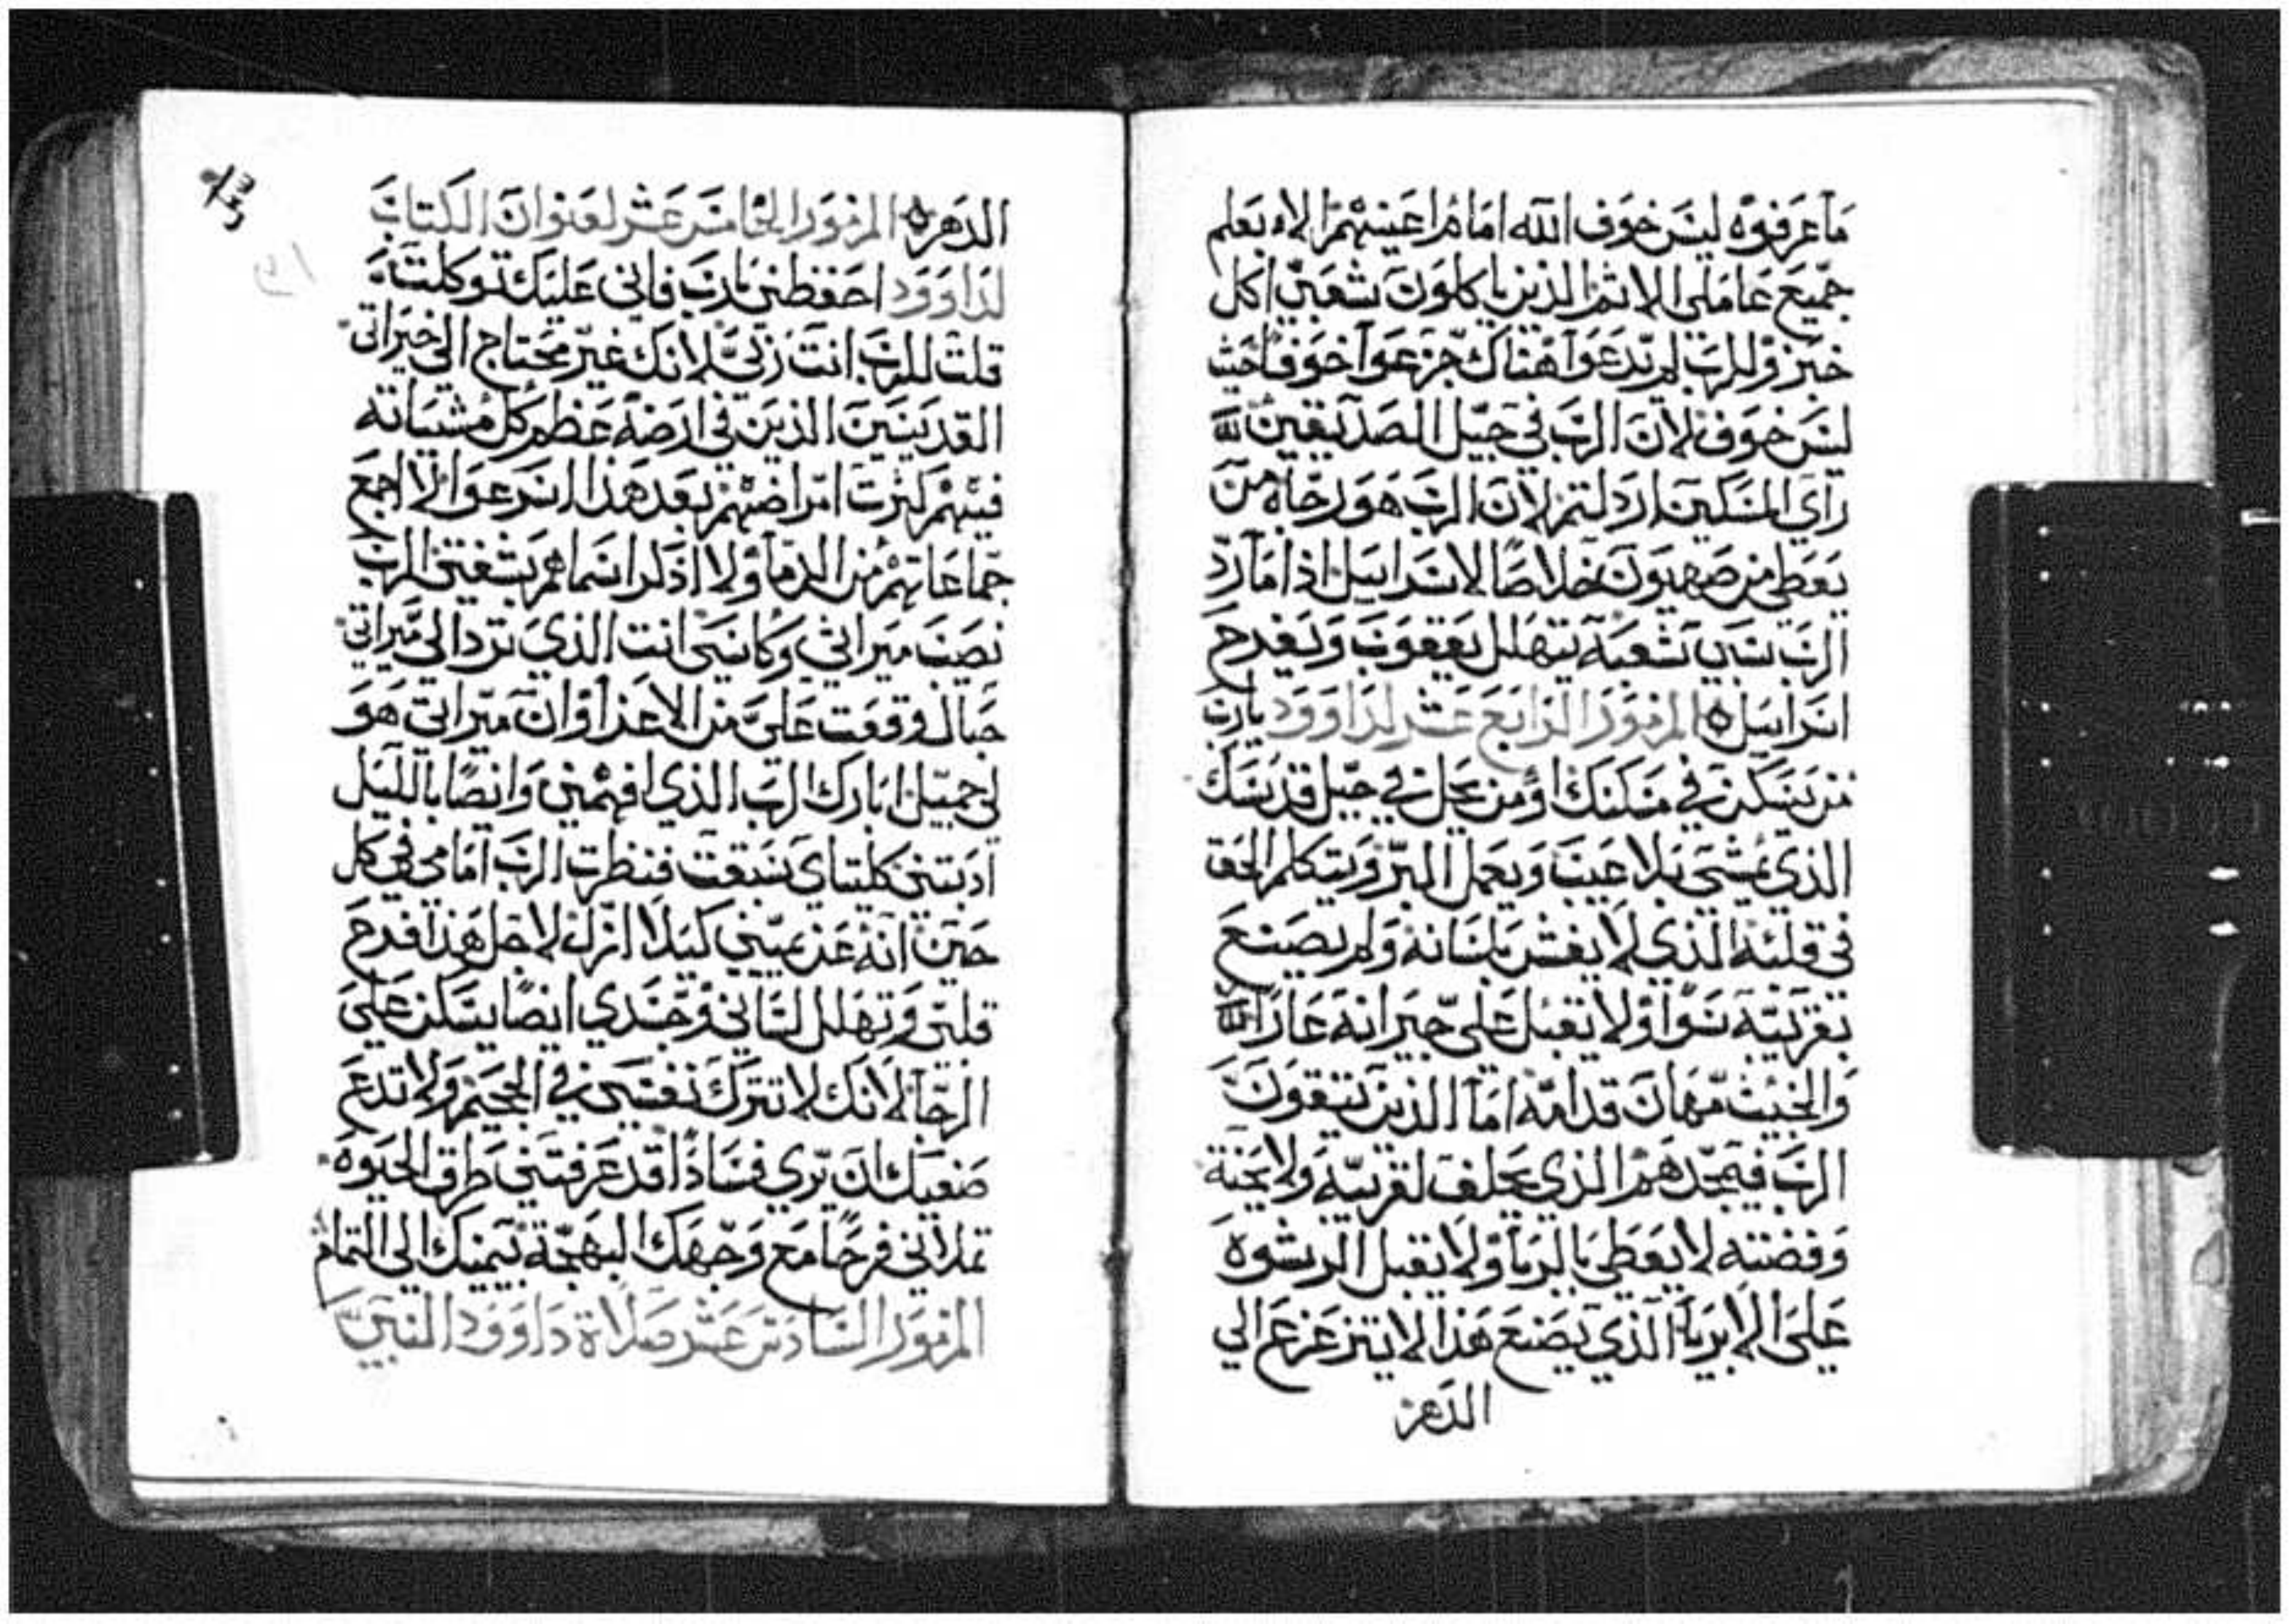 ما عرفوه ليس خوف الله امام اعينهم الا يعلم
جميع عاملي الاثم الذين ياكلون شعبي اكل
خبز وللرب لم يدعوا هناك جزعوا خوفا حيث
ليس خوف لان الرب في جيل الصديقين
راي المسكين ارذلتم لان الرب هو رجاه من
يعطي من صهيون خلاصا لاسراييل اذا ما رد
الرب سبي شعبه يتهلل يعقوب ويفرح
اسراييل ه المزمور الرابع عشر لداوود يارب
من يسكن في مسكنك او من يحل في جبل قدسك
الذي يمشي بلا عيب ويعمل البر ويتكلم الحق
في قلبه الذي لا يغش بلسانه ولم يصنع
بقريبه سوا ولا يقبل علي جيرانه عارا
والخبيث مهان قدامه اما الذين يتقون
الرب فيمجدهم الذي يحلف لقريبه ولا يحنة
وفضته لا يعطي بالربا ولا يقبل الرشوه
علي الابريا الذي يصنع هذا لا يتزعزع الي
الدهر
الدهر ه المزمور الخامس عشر لعنوان الكتاب
لداوود احفظني يارب فاني عليك توكلت
قلت للرب انت ربي لانك غير محتاج الي خيراتي
القديسين الذين في ارضه عظم كل مشياته
فيهم كثرت امراضهم بعد هذا اسرعوا لا اجمع
جماعاتهم من الدما ولا اذكر اسماهم بشفتي الرب
نصب ميراثي وكاسي انت الذي ترد الي ميراثي
حبال وقعت علي من الاعزا وان ميراثي هو
لي جميل ابارك الرب الذي افهمني وايضا بالليل
ادبتني كليتاي سبقت فنظرت الرب امامي في كل
حين انه عن يميني كيلا ازل لاجل هذا فرح
قلبي وتهلل لساني وجسدي ايضا يسكن علي
الرجا لانك لا تترك نفسي في الجحيم ولا تدع
صفيك ان يري فسادا قد عرفتني طرق الحيوه
تملاني فرحا مع وجهك البهجة بيمينك الي التمام
المزمور السادس عشر صلاة داوود النبي